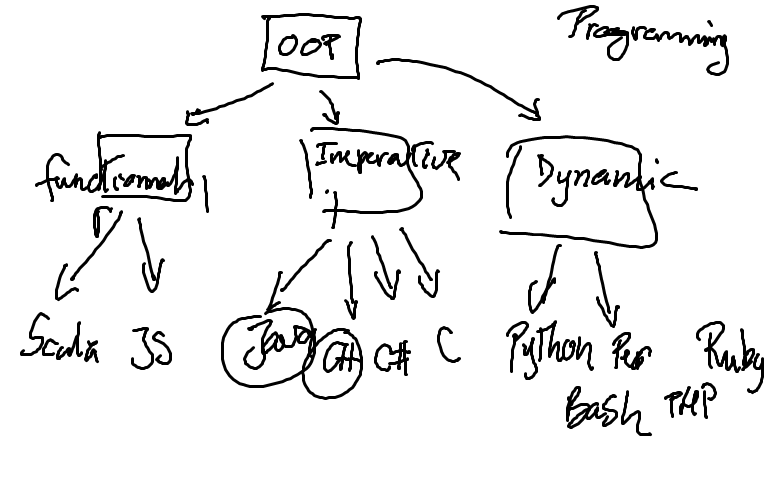 Programming
OOP
functional Imperative Dynamic
Scala JS Java C# C Python Ruby
Bash PHP